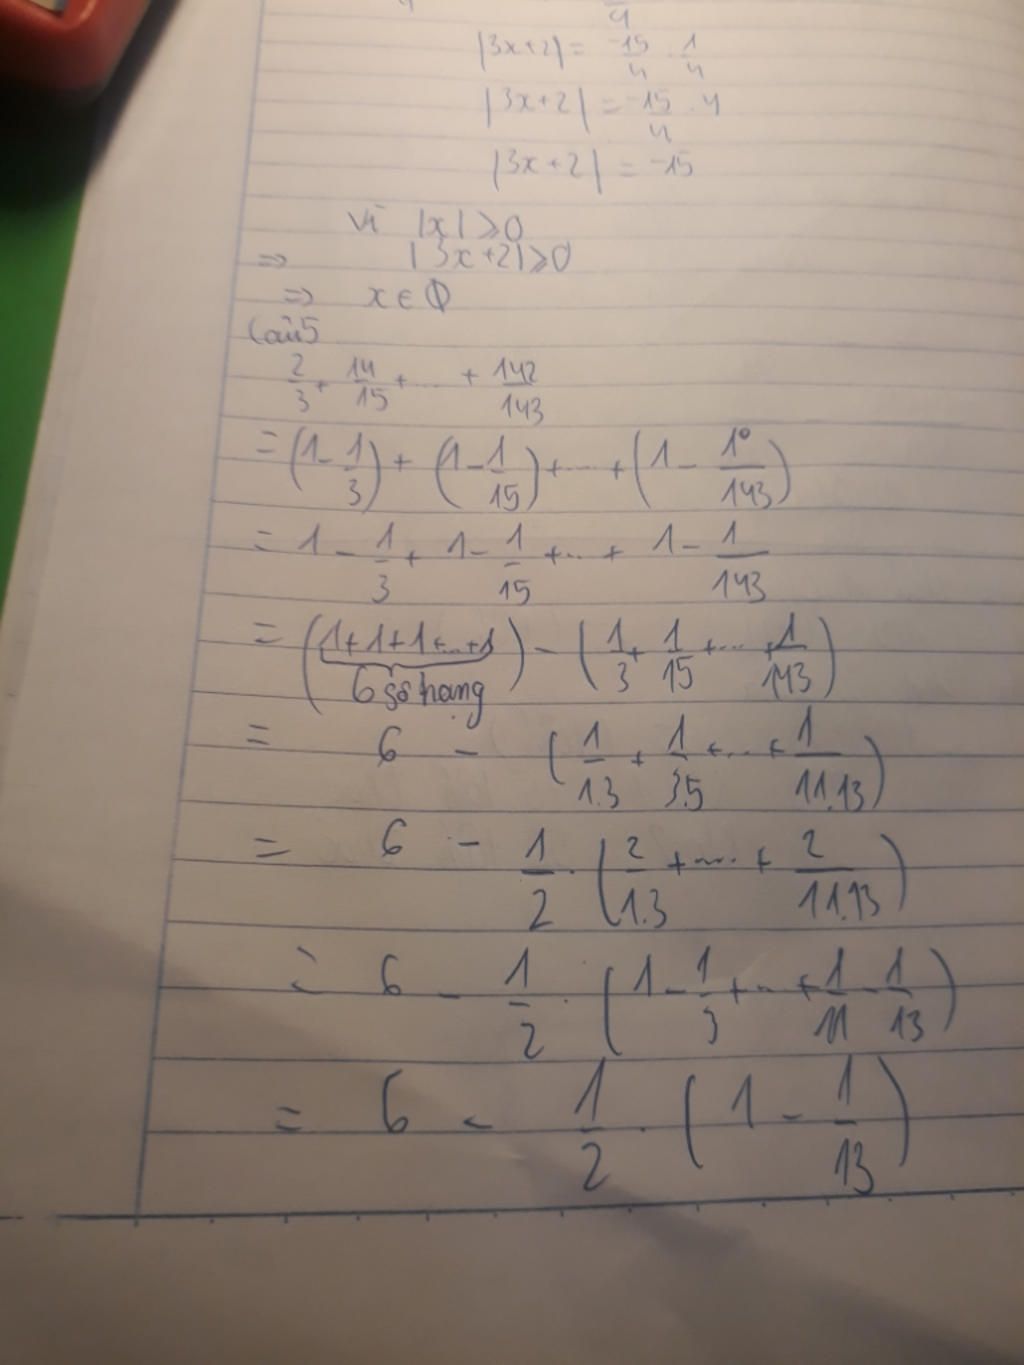 4
|3x+2| = -15/4 : 1/4
|3x+2| = -15/4 . 4
|3x+2| = -15
Vì |x| ≥ 0
⇒ |3x+2| ≥ 0
⇒ x ∈ Φ
Câu 5
2/3 + 14/15 + ... + 142/143
= (1 - 1/3) + (1 - 1/15) + ... + (1 - 1/143)
= 1 - 1/3 + 1 - 1/15 + ... + 1 - 1/143
= (1+1+1+...+1) - (1/3 + 1/15 + ... + 1/143)
6 số hạng
= 6 - (1/1.3 + 1/3.5 + ... + 1/11.13)
= 6 - 1/2 . (2/1.3 + ... + 2/11.13)
= 6 - 1/2 . (1 - 1/3 + ... + 1/11 - 1/13)
= 6 - 1/2 . (1 - 1/13)